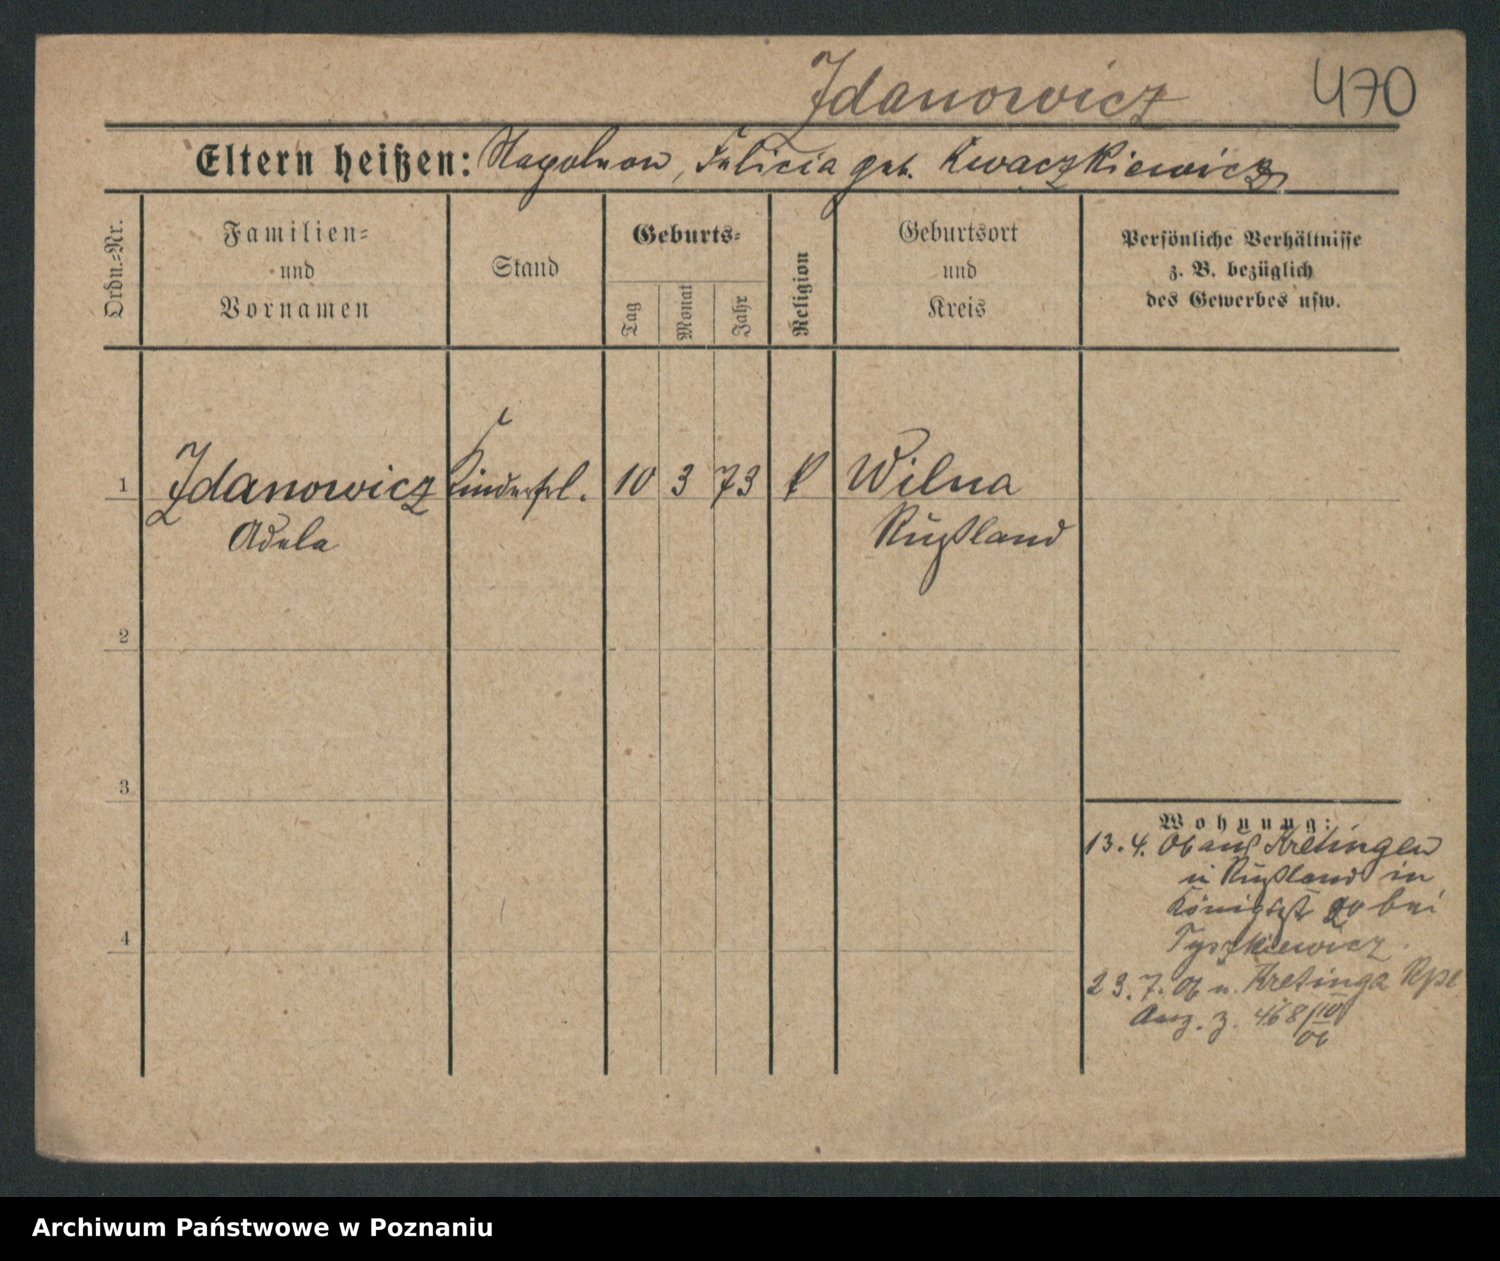 Zdanowicz 470
Eltern heißen: Napoleon, Felicia geb. Kwaczkiewicz
Ordn.-Nr.
Familien-
und
Vornamen
Stand
Geburts-
Tag
Monat
Jahr
Religion
Geburtsort
und
Kreis
Persönliche Verhältnisse
z. B. bezüglich
des Gewerbes usw.
1 Zdanowicz Kinderfrl. 10 3 73 k Wilna
Adela Rußland
2
3
4
Wohnung:
13. 4. 06 aus Kretingen
in Rußland in
Königspl. bei
Tyszkiewicz
23. 7. 06 n. Kretinga
z. 468/IV
06
Archiwum Państwowe w Poznaniu